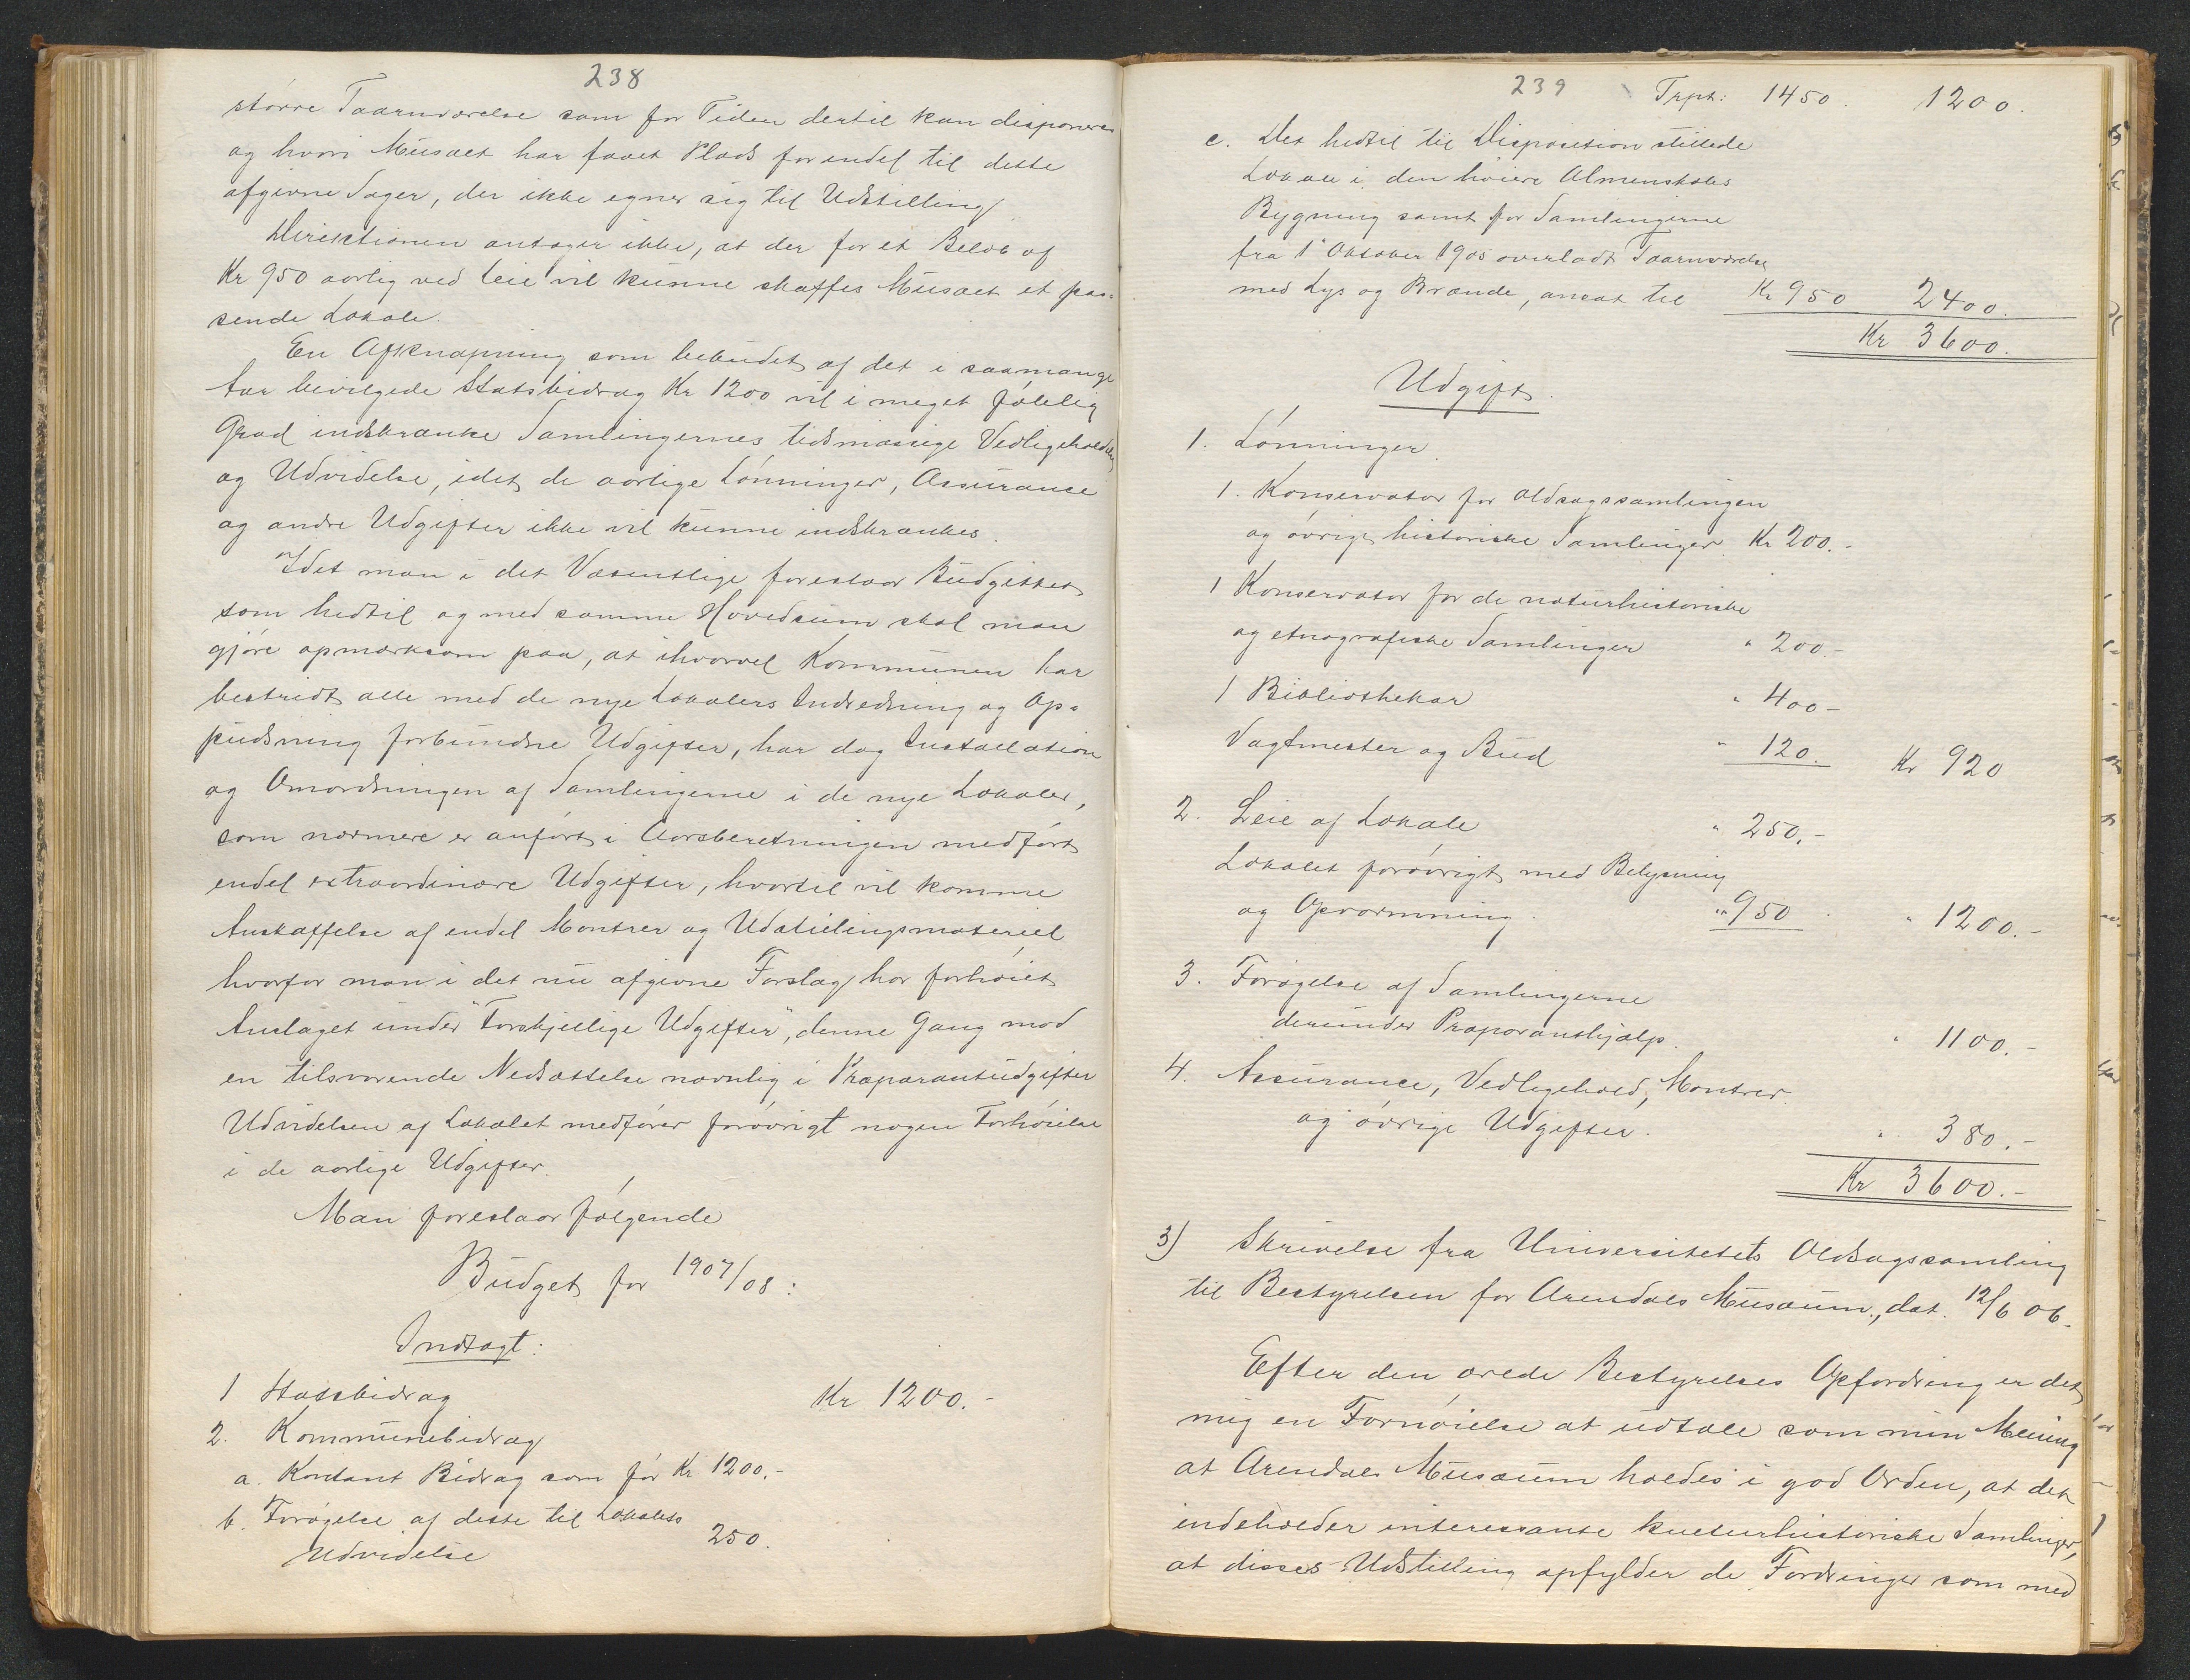 238
større Taarnværelse som for Tiden dertil kan disponeres
og hvori Musæet har faaet Plads for endel til dette
afgivne Sager, der ikke egner sig til Udstilling
Direktionen antager ikke, at der for et Beløb af
Kr 950 aarlig ved Leie vil kunne skaffes Musæet et pas-
sende Lokale.
En Afknapning som bebudet af det i saamange
Aar bevilgede Statsbidrag Kr 1200 vil i meget følelig
Grad indskrænke Samlingernes tidsmæssige Vedligeholdelse
og Udvidelse, idet de aarlige Lønninger, Assurance
og andre Udgifter ikke vil kunne indskrænkes.
Idet man i det Væsentlige foreslaar Budgettet
som hedtil og med samme Hovedsum skal man
gjøre opmærksom paa, at ihvorvel Kommunen har
bestridt alle med de nye Lokalers Indredning og Op-
pudsning forbundne Udgifter, har dog Installation
og Omordningen af Samlingerne i de nye Lokaler,
som nærmere er anført i Aarsberetningen medført
endel extraordinære Udgifter, hvortil vil komme
Anskaffelse af endel Montrer og Udstillingsmateriel
hvorfor man i det nu afgivne Forslag har forhøiet
Anslaget under "Forskjellige Udgifter", denne Gang mod
en tilsvarende Nedsættelse navnlig i Præparantudgifter
Udvidelsen af Lokalet medfører forøvrigt nogen Forhøielse
i de aarlige Udgifter.
Man foreslaar følgende
Budget for 1907/08:
Indtægt:
1 Statsbidrag Kr 1200.-
2. Kommunebidrag
a. Kontant Bidrag som før Kr 1200.-
b. Forøgelse af dette til Lokalets
Udvidelse 250.
239 Trpt: 1450. 1200.
c. Det hedtil til Disposition stillede
Lokale i den høiere Almenskoles
Bygning samt for Samlingerne
fra 1' Oktober 1905 overladt Taarnværelse
med Lys og Brænde, ansat til Kr 950 2400.
Kr 3600.
Udgift.
1. Lønninger.
1. Konservator for Oldsagssamlingen
og øvrige historiske Samlinger Kr 200.-
1 Konservator for de naturhistoriske
og etnografiske Samlinger " 200.-
1 Bibliothekar " 400-
Vagtmester og Bud " 120. Kr 920
2. Leie af Lokale " 250.-
Lokalet forøvrigt med Belysning
og Opvarmning. " 950 " 1200.-
3. Forøgelse af Samlingerne
derunder Præparanthjælp. " 1100.-
4. Assurance, Vedligehold, Montrer
og øvrige Udgifter. " 380.-
Kr 3600.-
3) Skrivelse fra Universitetets Oldsagssamling
til Bestyrelsen for Arendals Musæum, dat. 12/6 06.
Efter den ærede Bestyrelses Opfordring er det
mig en Fornøielse at udtale som min Mening
at Arendals Musæum holdes i god Orden, at det
indeholder interessante kulturhistoriske Samlinger,
at disses Udstilling opfylder de Fordringer som med